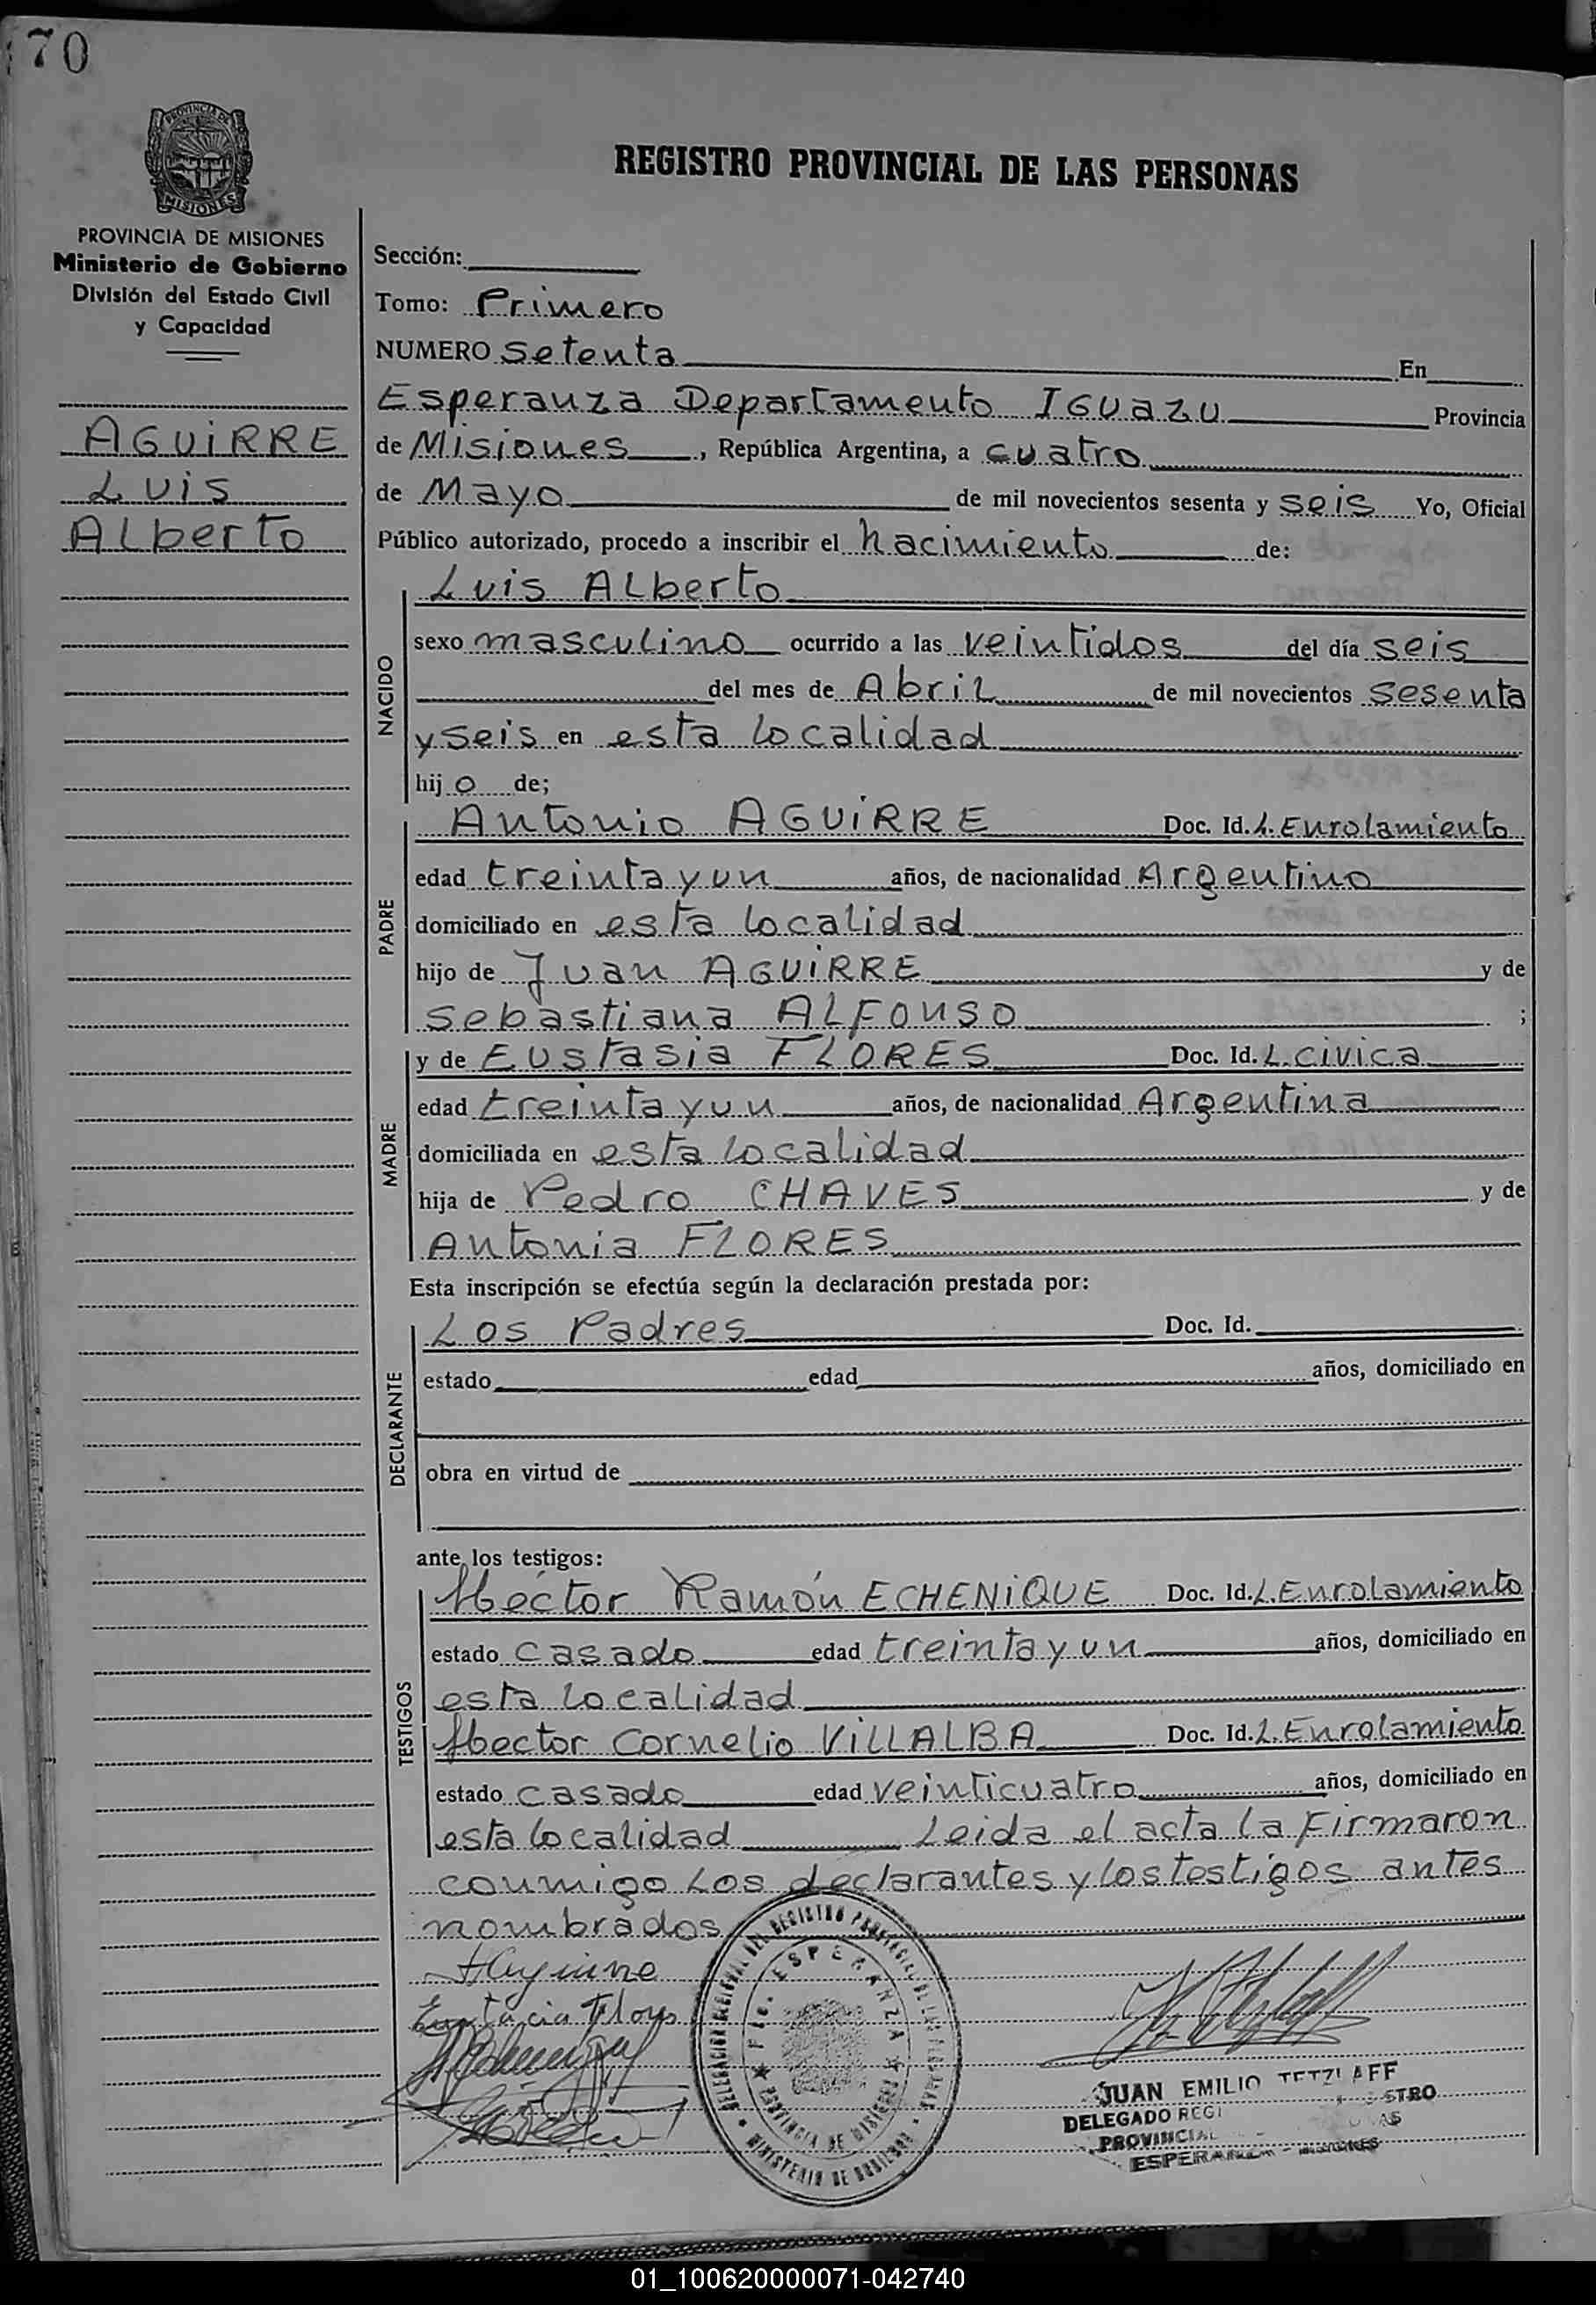 70
PROVINCIA DE
MISIONES
REGISTRO PROVINCIAL DE LAS PERSONAS
PROVINCIA DE MISIONES
Ministerio de Gobierno
División del Estado Civil
y Capacidad
AGUIRRE
Luis
Alberto
Sección:
Tomo: Primero
NUMERO Setenta En
Esperanza Departamento IGUAZU Provincia
de Misiones, República Argentina, a cuatro
de Mayo de mil novecientos sesenta y seis Yo, Oficial
Público autorizado, procedo a inscribir el nacimiento de:
NACIDO
Luis Alberto
sexo masculino ocurrido a las veintidos del día seis
del mes de Abril de mil novecientos sesenta
y seis en esta localidad
hijo de;
PADRE
Antonio AGUIRRE Doc. Id. L. Enrolamiento
edad treinta y un años, de nacionalidad Argentino
domiciliado en esta localidad
hijo de Juan AGUIRRE y de
Sebastiana ALFONSO ;
MADRE
y de Eustasia FLORES Doc. Id. L. civica
edad treinta y un años, de nacionalidad Argentina
domiciliada en esta localidad
hija de Pedro CHAVES y de
Antonia FLORES
Esta inscripción se efectúa según la declaración prestada por:
DECLARANTE
Los Padres Doc. Id.
estado edad años, domiciliado en
obra en virtud de
ante los testigos:
TESTIGOS
Héctor Ramón ECHENIQUE Doc. Id. L. Enrolamiento
estado casado edad treinta y un años, domiciliado en
esta localidad
Hector Cornelio VILLALBA Doc. Id. L. Enrolamiento
estado casado edad veinticuatro años, domiciliado en
esta localidad Leida el acta la firmaron
conmigo los declarantes y los testigos antes
nombrados
Flores
ESPERANZA
PROVINCIA DE MISIONES
MINISTERIO DE GOBIERNO
JUAN EMILIO TETZLAFF
DELEGADO
PROVINCIAL
ESPERANZA - MISIONES
01_100620000071-042740